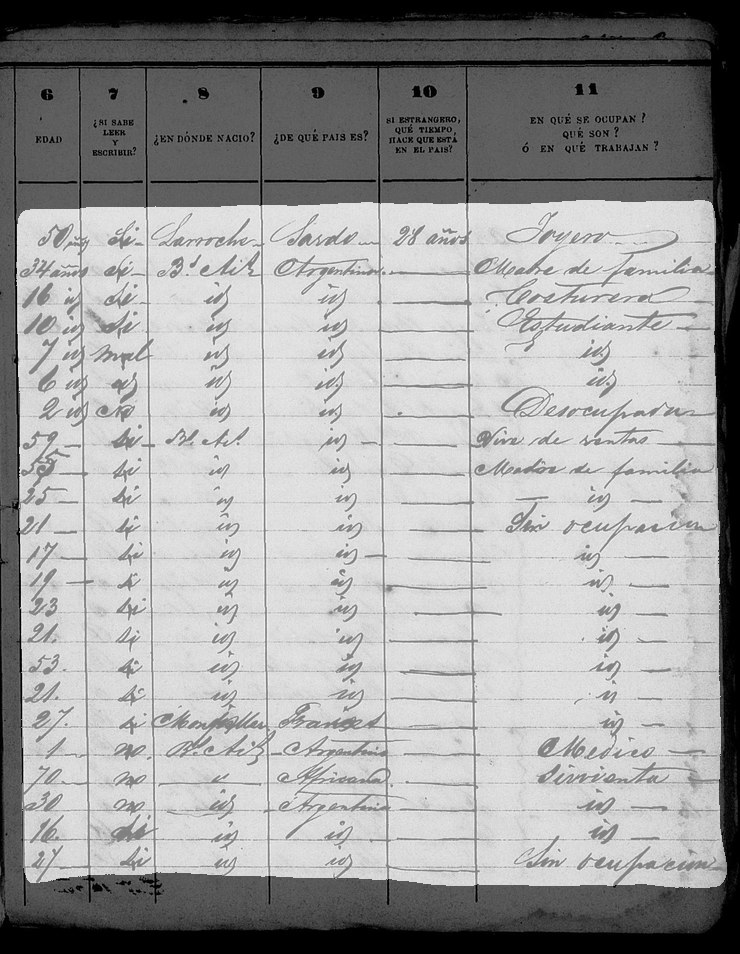 6 7 8 9 10 11
EDAD ¿SI SABE LEER Y ESCRIBIR? ¿EN DÓNDE NACIO? ¿DE QUÉ PAIS ES? SI ESTRANGERO, QUÉ TIEMPO HACE QUE ESTÁ EN EL PAIS? EN QUÉ SE OCUPAN? QUÉ SON? Ó EN QUÉ TRABAJAN?
50 años Si Sardo 28 años Joyero
34 años Si Bs Ais Argentina Madre de familia
16 id Si id id Costurera
10 id Si id id Estudiante
7 id mal id id id
6 id id id id id
2 id No id id Desocupada
59 Si Bs Ais id Vive de rentas
55 si id id Madre de familia
25 si id id id
21 si id id Sin ocupacion
17 si id id id
19 si id id id
23 si id id id
21. si id id id
53. si id id id
21. si id id id
27. si Frances id
1 no Bs Ais Argentino Medico
70 no Africana sirvienta
30 no id Argentina id
16. id id id
27 si id id Sin ocupacion